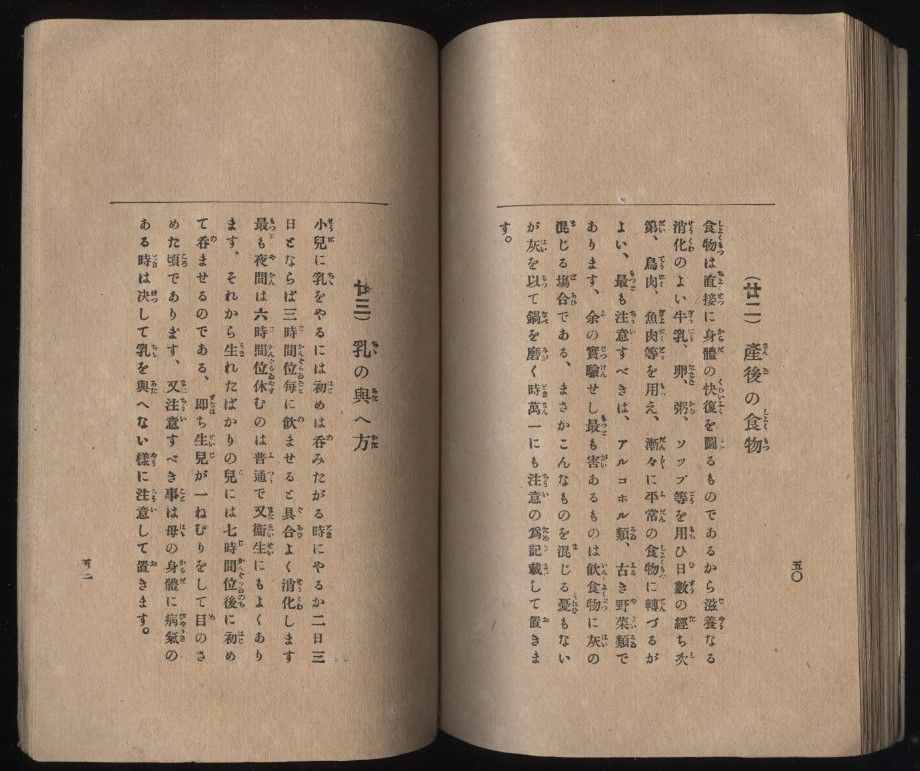 (廿二) 産後の食物
食物は直接に身體の快復を圖るものであるから滋養なる
消化のよい牛乳、卵、粥、ソツプ等を用ひ日數の經ち次
第、鳥肉、魚肉等を用え、漸々に平常の食物に轉づるが
よい、最も注意すべきは、アルコホル類、古き野菜類で
あります、余の實驗せし最も害あるものは飲食物に灰の
混じる塲合である、まさかこんなものを混じる憂もない
が灰を以て鍋を磨く時萬一にも注意の爲記載して置きま
す。
五〇
廿三) 乳の與へ方
小兒に乳をやるには初めは呑みたがる時にやるか二日三
日とならば三時間位毎に飲ませると具合よく消化します
最も夜間は六時間位休むのは普通で又衞生にもよくあり
ます、それから生れたばかりの兒には七時間位後に初め
て呑ませるのである、即ち生兒が一ねむりをして目のさ
めた頃であります、又注意すべき事は母の身體に病氣の
ある時は決して乳を與へない樣に注意して置きます。
五一